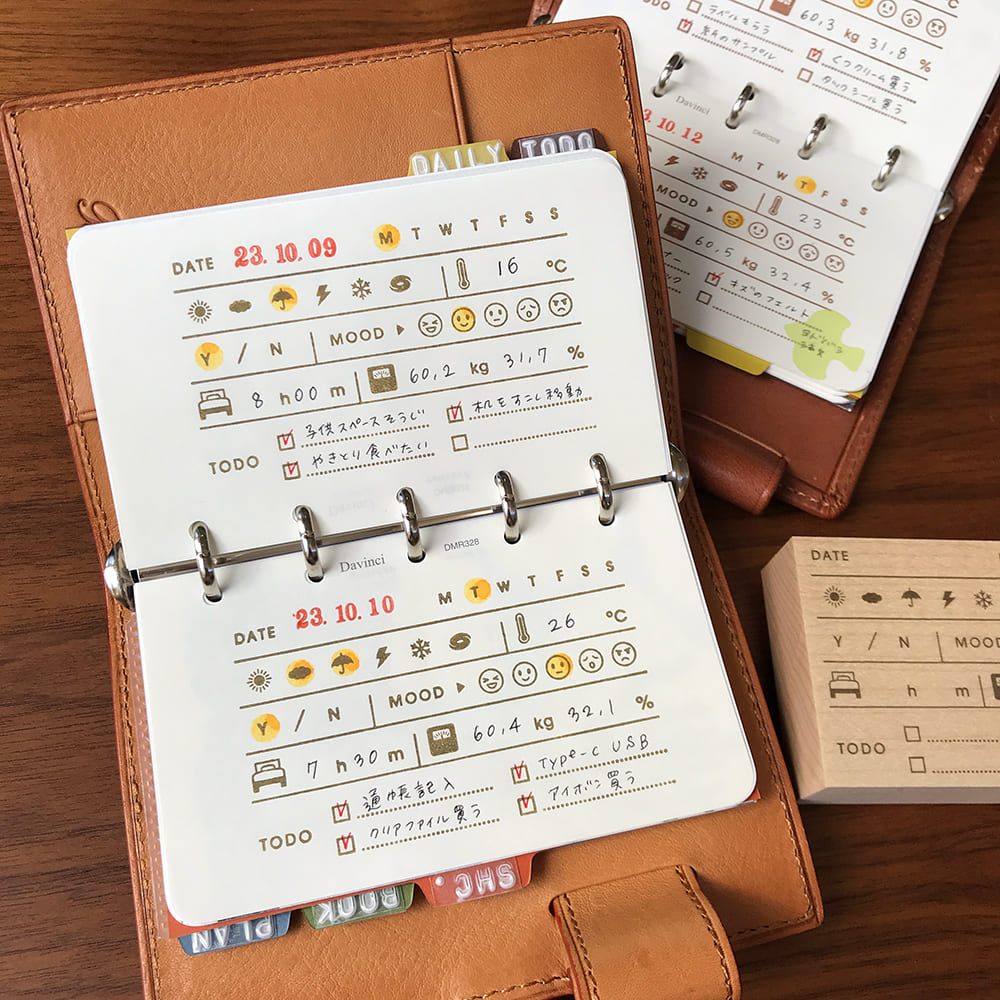 DAILY
TODO
DATE 23.10.09 M T W T F S S
16 ℃
Y / N MOOD ▶
8 h 00 m 60.2 kg 31.7 %
子供スペースそうじ
机をすこし移動
TODO
やきとり食べたい
Davinci DMR328
DATE 23.10.10 M T W T F S S
26 ℃
Y / N MOOD ▶
7 h 30 m 60.4 kg 32.1 %
通帳記入
Type-C USB
TODO
クリアファイル買う
アイボン買う
PLAN
BOOK
SHC.
ラベルもらう
60.3 kg 31.8 %
くつクリーム買う
タックシール買う
Davinci DMR328
3.10.12 M T W T F S S
23 ℃
MOOD ▶
60.5 kg 32.4 %
キズのフェルト
DATE
Y / N MOOD
h m
TODO